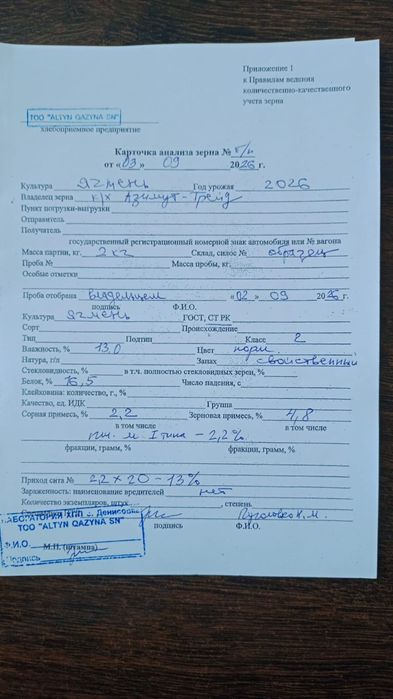 Приложение 1
к Правилам ведения
количественно-качественного
учета зерна
ТОО "ALTYN QAZYNA SN"
хлебоприемное предприятие
Карточка анализа зерна № б/н
от «03» 09 2026 г.
Культура ячмень Год урожая 2026
Владелец зерна к/х Азимут-Трейд
Пункт погрузки-выгрузки
Отправитель
Получатель
государственный регистрационный номерной знак автомобиля или № вагона
Масса партии, кг. 2 кг Склад, силос № образец
Проба № Масса пробы, кг.
Особые отметки
Проба отобрана владельцем «02» 09 2026 г.
подпись Ф.И.О.
Культура ячмень ГОСТ, СТ РК
Сорт Происхождение
Тип Подтип Класс 2
Влажность, % 13,0 Цвет норм
Натура, г/л Запах свойственный
Стекловидность, % в т.ч. полностью стекловидных зерен, %
Белок, % 16,5 Число падения, с
Клейковина: количество, г., %
Качество, ед. ИДК Группа
Сорная примесь, % 2,2 Зерновая примесь, % 4,8
в том числе в том числе
- 2,2%
фракции, грамм, % фракции, грамм, %
Приход сита № 2,2 х 20 - 13%
Зараженность: наименование вредителей нет
Количество экземпляров, штук , степень
подпись Ф.И.О.
ЛАБОРАТОРИЯ ХПП с. Денисовка
ТОО "ALTYN QAZYNA SN"
Ф.И.О.
М.П. (штампа)
Подпись